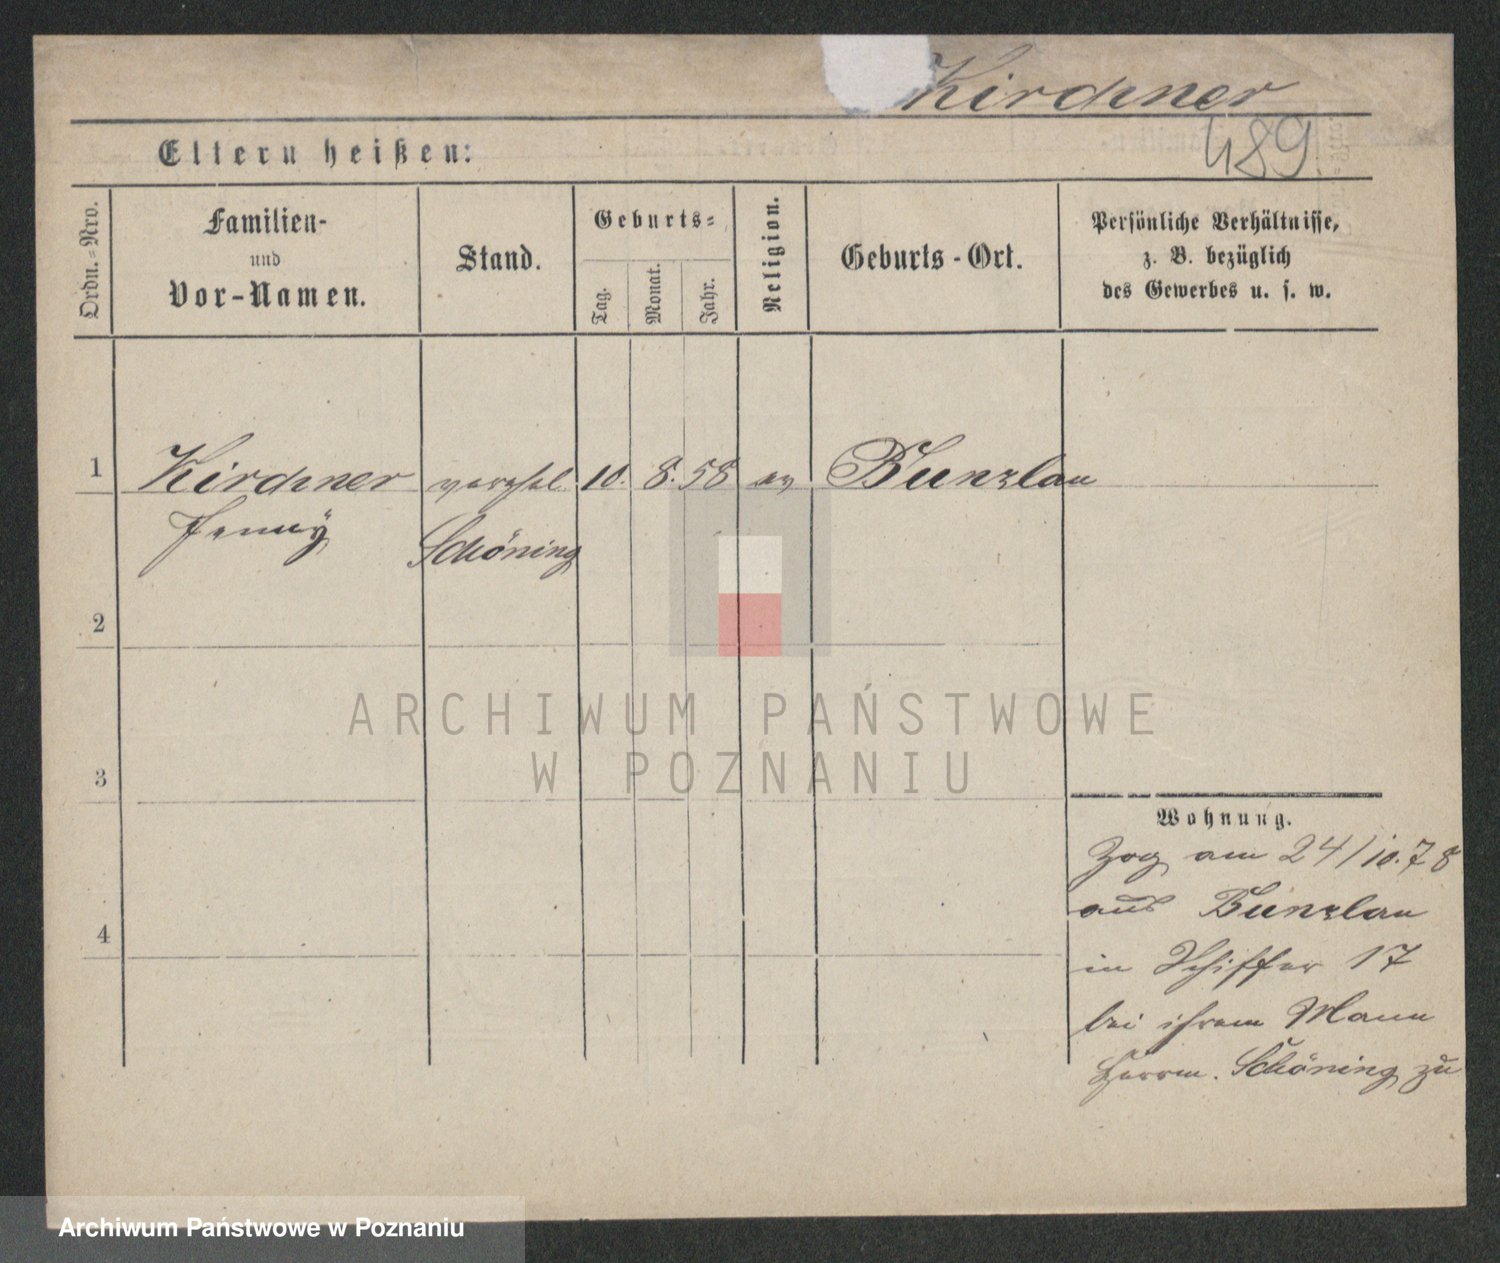 Kirchner
489
Eltern heißen:
Ordn.-Nro.
Familien-
und
Vor-Namen.
Stand.
Geburts-
Tag.
Monat.
Jahr.
Religion.
Geburts-Ort.
Persönliche Verhältnisse,
z. B. bezüglich
des Gewerbes u. s. w.
1 Kirchner verehel. 10. 8. 58 ev Bunzlau
Jenny Schöning
2
3
4
Wohnung.
Zog am 24/10.78
aus Bunzlau
in Schiffer 17
bei ihrem Mann
Herrm. Schöning zu
ARCHIWUM PAŃSTWOWE
W POZNANIU
Archiwum Państwowe w Poznaniu